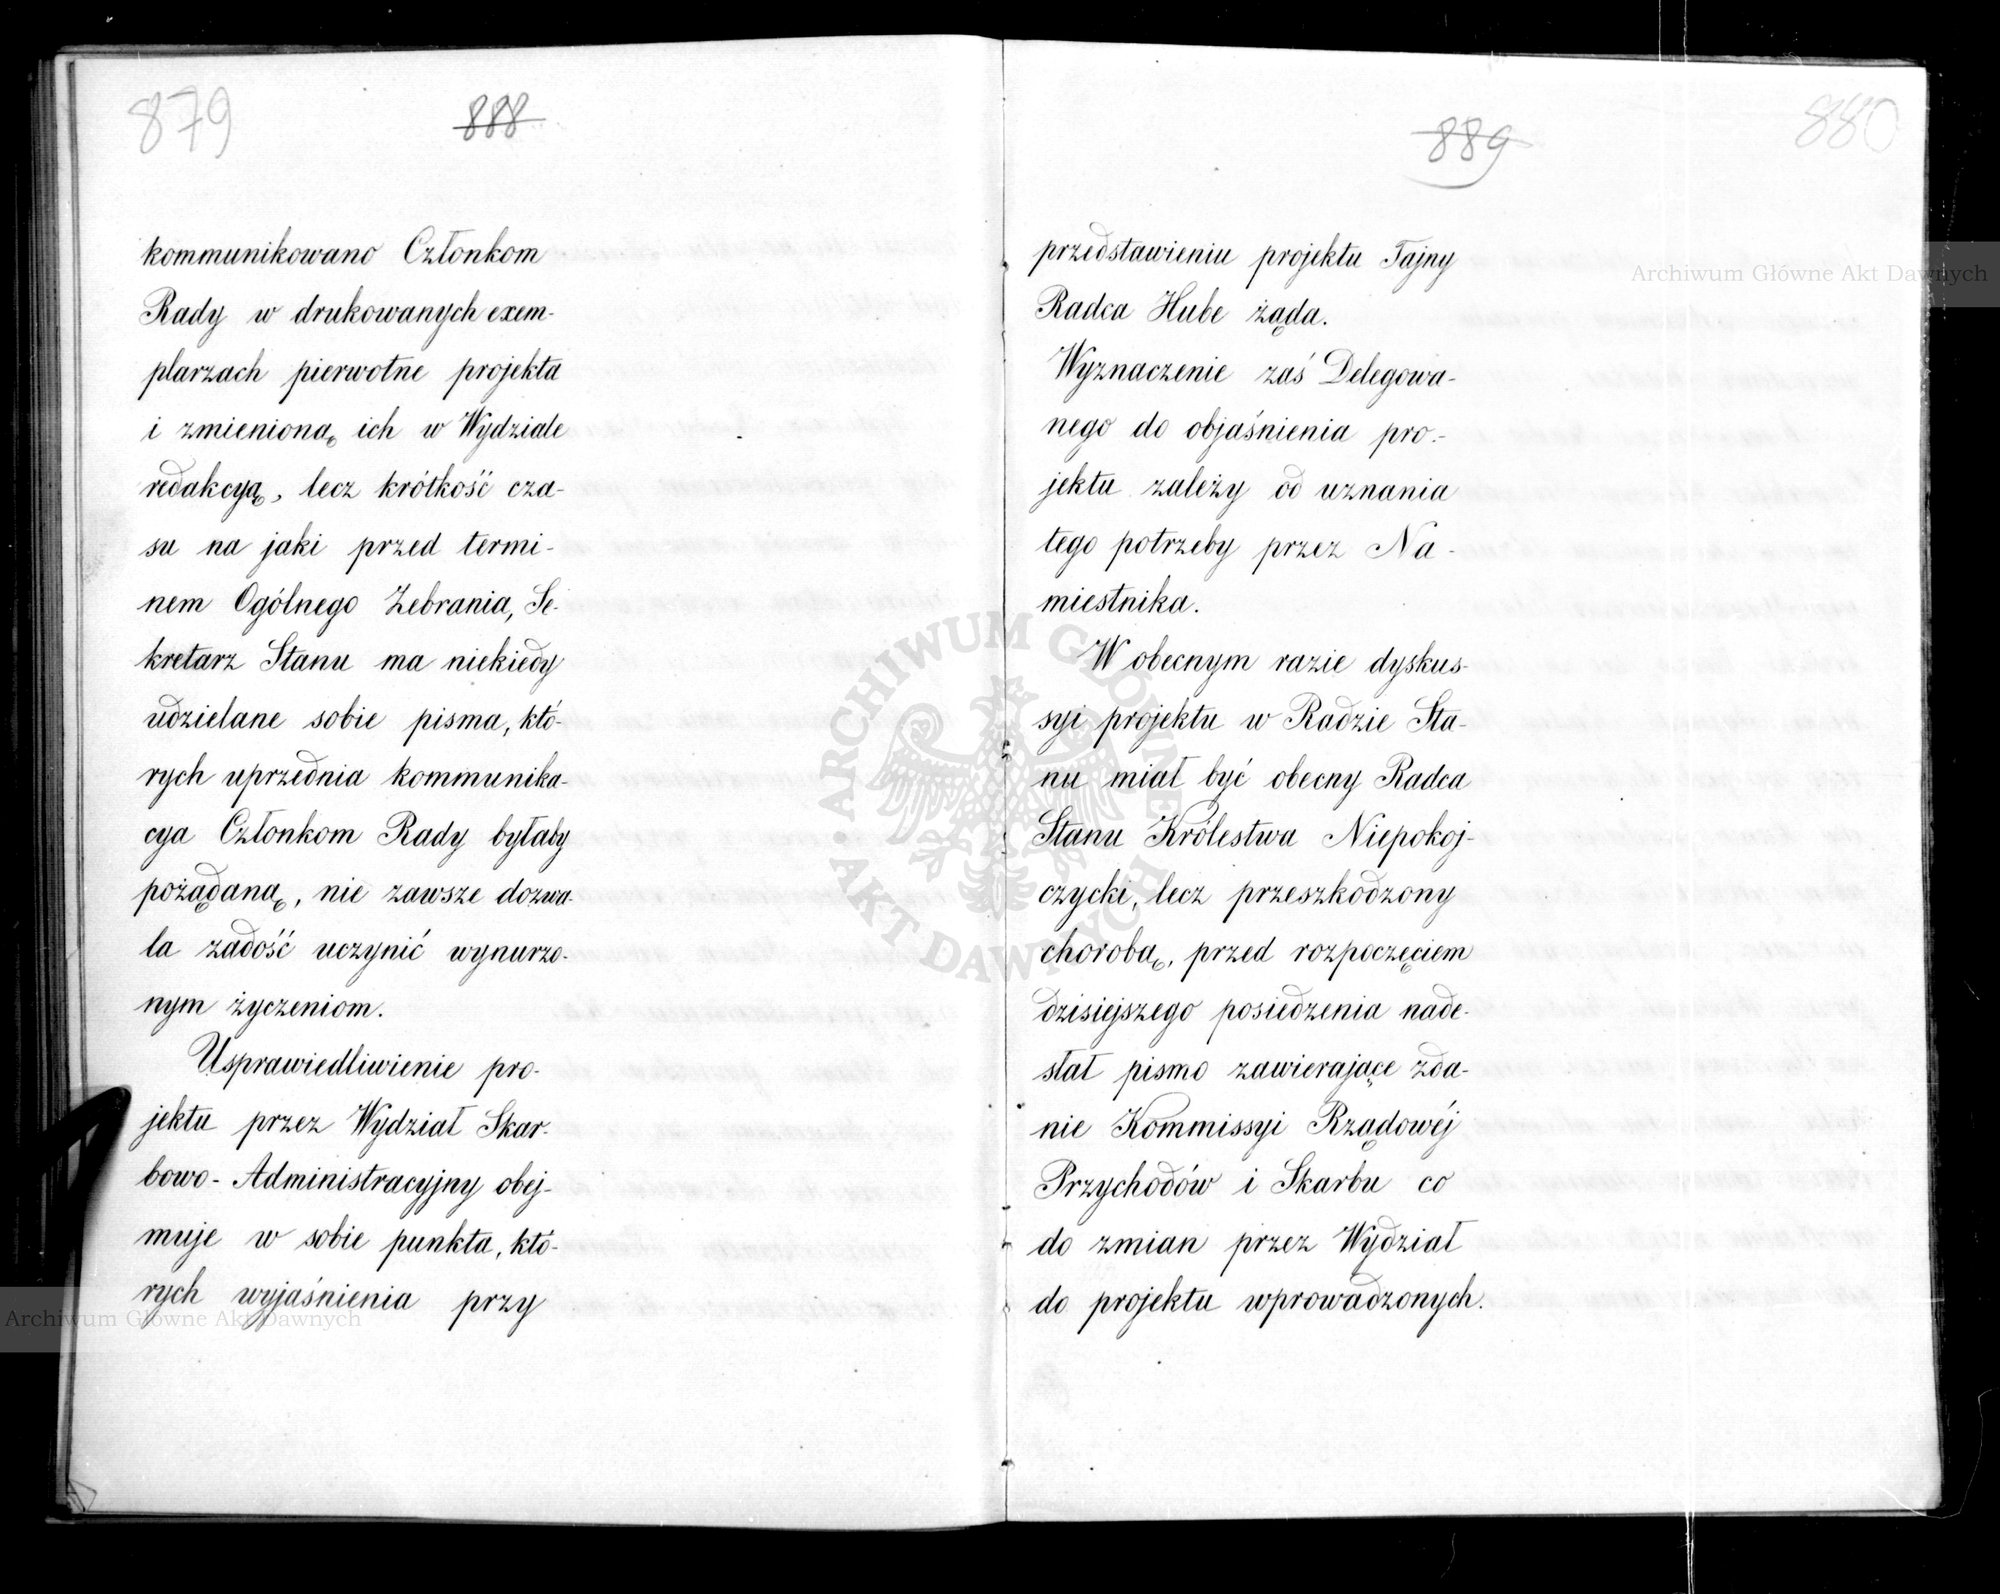 879
888
kommunikowano Członkom
Rady w drukowanych exem-
plarzach pierwotne projekta
i zmienioną ich w Wydziale
redakcyą, lecz krótkość cza-
su na jaki przed termi-
nem Ogólnego Zebrania, Se-
kretarz Stanu ma niekiedy
udzielane sobie pisma, któ-
rych uprzednia kommunika-
cya Członkom Rady byłaby
pożądaną, nie zawsze dozwa-
la zadość uczynić wynurzo-
nym życzeniom.
Usprawiedliwienie pro-
jektu przez Wydział Skar-
bowo-Administracyjny obej-
muje w sobie punkta, któ-
rych wyjaśnienia przy
889
880
przedstawieniu projektu Tajny
Radca Hube żąda.
Wyznaczenie zaś Delegowa-
nego do objaśnienia pro-
jektu zależy od uznania
tego potrzeby przez Na-
miestnika.
W obecnym razie dyskus-
syi projektu w Radzie Sta-
nu miał być obecny Radca
Stanu Królestwa Niepokoj-
czycki, lecz przeszkodzony
chorobą, przed rozpoczęciem
dzisiejszego posiedzenia nade-
słał pismo zawierające zda-
nie Kommissyi Rządowéj
Przychodów i Skarbu co
do zmian przez Wydział
do projektu wprowadzonych.
Archiwum Główne Akt Dawnych
ARCHIWUM GŁÓWNE AKT DAWNYCH
Archiwum Główne Akt Dawnych